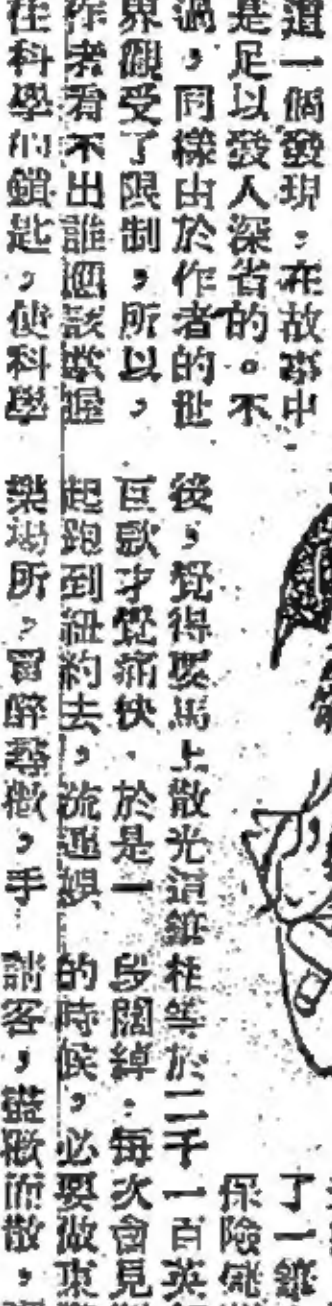 這一個發現，在故事中
是足以發人深省的。不
過，同樣由於作者的世
界觀受了限制，所以，
作者看不出誰應該掌握
住科學的鎖匙，使科學
後，覺得要馬上散光這
巨款才覺痛快。於是一
起跑到紐約去，流連娛
樂場所，買醉尋歡，手
等於二千一百英
段闊綽。每次會見
的時候，必要做東
請客，盡歡而散，
了一
保險